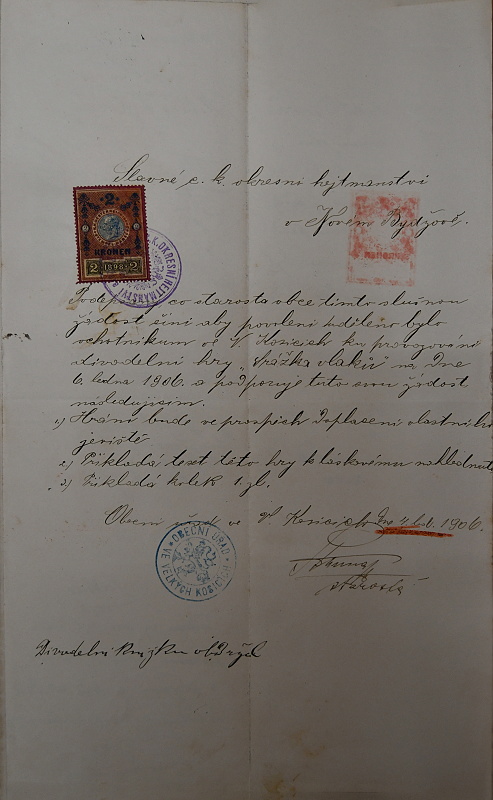 Slavné c. k. okresní hejtmanství
v Novém Bydžově.
2
KRONEN
2 1898 2
K. OKRESNÍ HEJTMANSTVÍ
co starosta obce tímto slušnou
žádost činí aby povolení uděleno bylo
ochotnikum ve V. Kosicích ku provozování
divadelní hry „Srážka vlaků" na Dne
6. ledna 1906. a podporuje tuto svou žádost
následujícím.
1) Hráni bude ve prospěch Doplacení vlastní
jeviště
2) Přikladá text této hry k láskavému nahlednutí
3) Přikladá kolek 1. zl.
Obecní úřad ve V. Kosicích Dne 4. led. 1906.
starosta
OBECNÍ ÚŘAD
VE VELKÝCH KOSICÍCH
Divadelní knížku obdržel